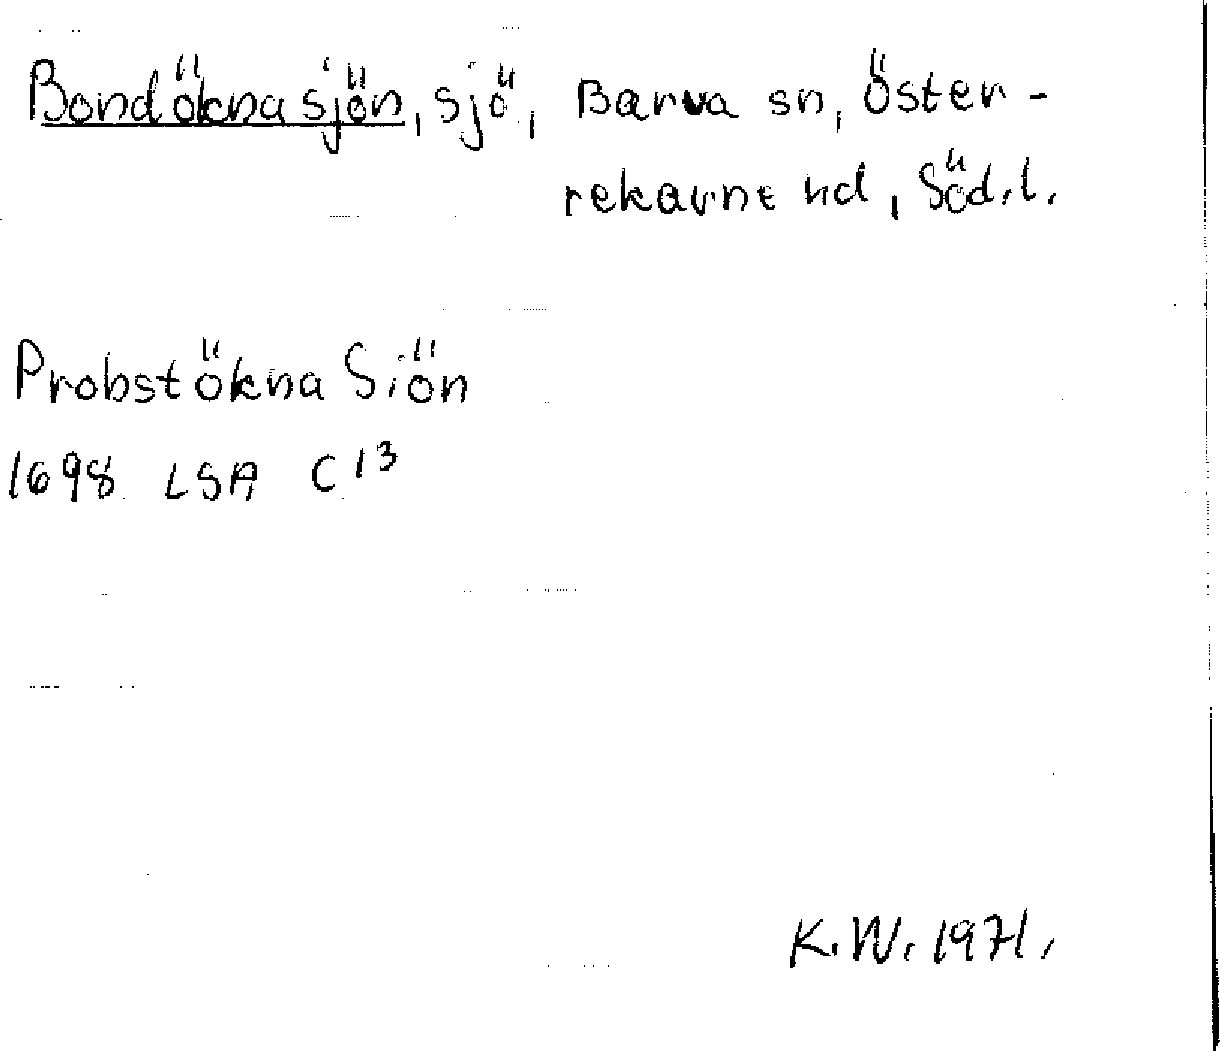 Bondöknasjön, sjö, Barva sn, Öster-
rekarne hd, Söd.l.
Probstökna Siön
1698 LSA C13
K.W. 1971.